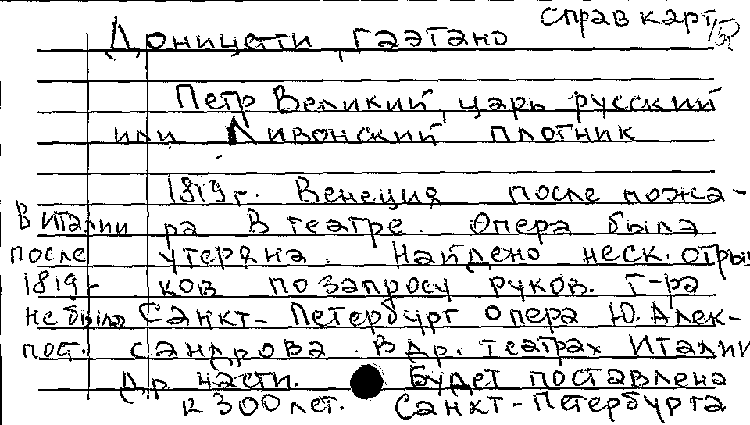 Справ карт
Доницетти, Гаэтано
Петр Великий, царь русский
или Ливонский плотник
1819 г. Венеция после пожа-
ра в театре. Опера была
утеряна. Найдено неск. отрыв
ков по запросу руков. т-ра
Санкт-Петербург опера Ю. Алек-
сандрова. В др. театрах Италии
В Италии
после
1819-
не было
пост.
др части. Будет поставлена
к 300 лет. Санкт-Петербурга